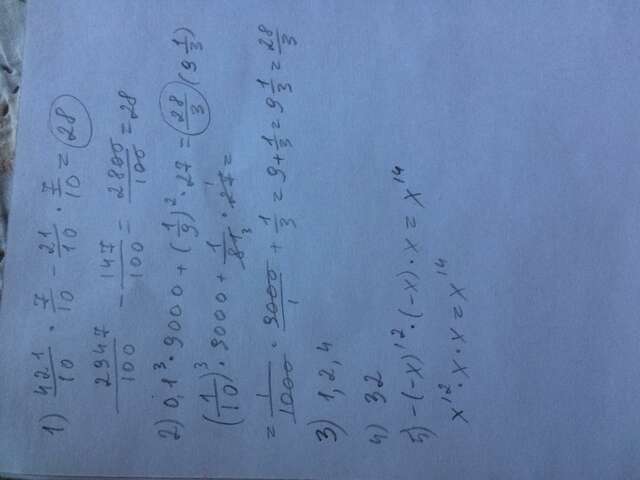 1) 421/10 · 7/10 - 21/10 · 7/10 = 28
2947/100 - 147/100 = 2800/100 = 28
2) 0,1³ · 9000 + (1/9)² · 27 = 28/3 (9 1/3)
(1/10)³ · 9000 + 1/81 3 · 27 1 =
= 1/1000 · 9000/1 + 1/3 = 9 + 1/3 = 9 1/3 = 28/3
3) 1, 2, 4
4) 32
5) -(-x)¹² · (-x) · x = x¹⁴
x¹² · x · x = x¹⁴